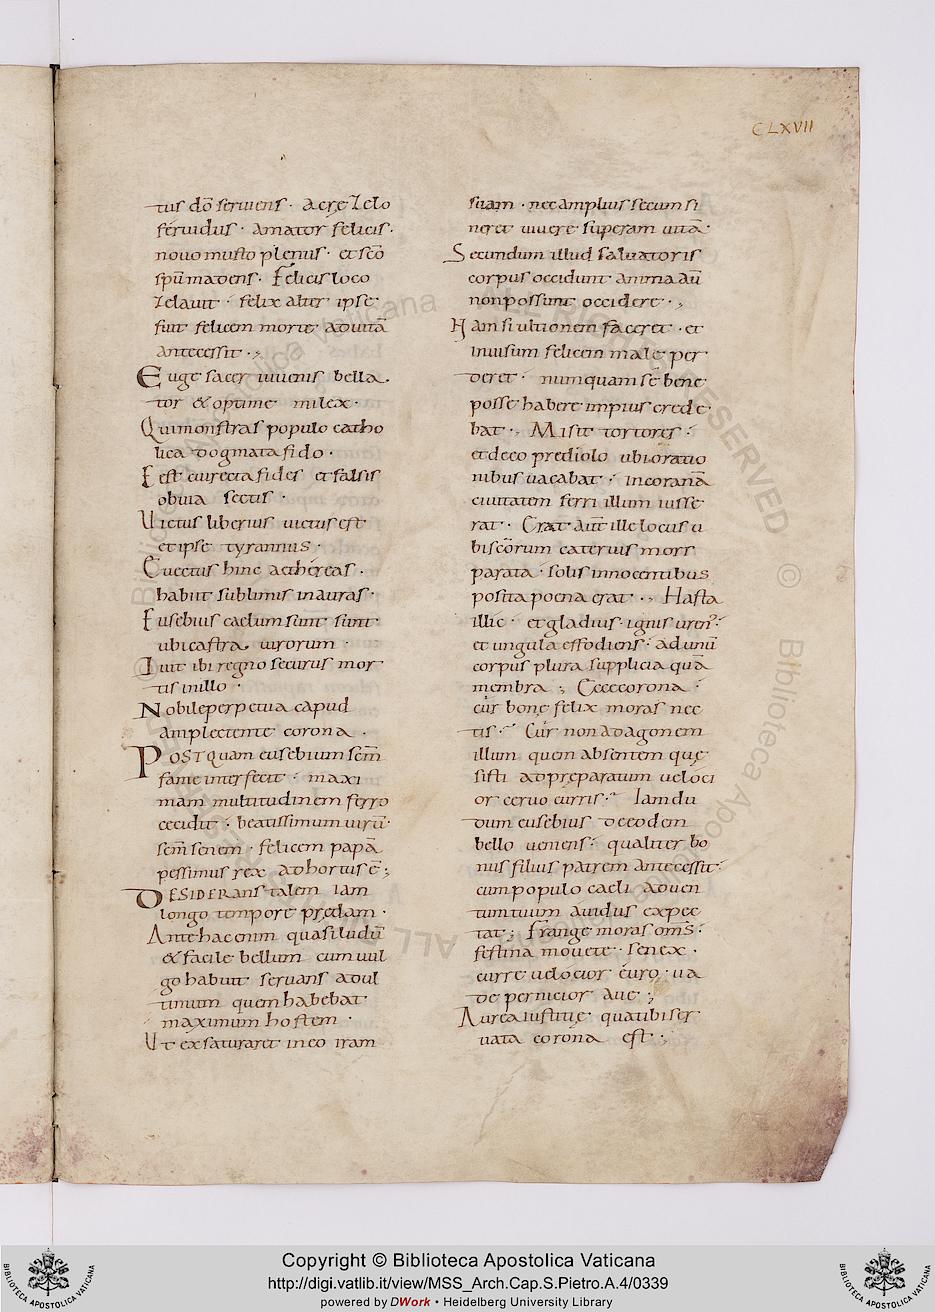 CLXVII
tus dō seruiens · acre zelo
feruidus · amator felicis ·
nouo musto plenus · et scō
spū madens · Felicis loco
zelauit · felix alter ipse
fuit felicem morte ad uitā
antecessit ·,
Euge sacer iuuenis bella
tor & optime milex ·
Qui monstras populo catho
lica dogmata fido ·
Est cui recta fides et falsis
obuia sectis ·
Uictus liberius uictus est
et ipse tyrannus ·
Euectus hinc aethereas ·
habuit sublimis in auras ·
Eusebius caelum sunt sunt
ubi castra uirorum ·
Iuit ibi regno securus mor
tis in illo ·
Nobile perpetua capud
amplectente corona ·
POSTQuam eusebium scm̄
fame interfecit · maxi
mam multitudinem ferro
cecidit · beatissimum uirū ·
scm̄ senem · felicem papā
pessimus rex adhortus ē ;
DESIDERANS talem iam
longo tempore predam ·
Ante hac enim quasi ludū
& facile bellum cum uul
go habuit seruans adul
timum quem habebat
maximum hostem ·
Ut exsaturaret in eo iram
suam · nec amplius secum si
neret uiuere superam uitā ·
Secundum illud saluatoris
corpus occidunt anima aū
non possunt occidere · ,
Nam si ultionem faceret · et
inuisum felicem male per
deret · numquam se bene
posse habere impius crede
bat · , Misit tortores :
et de eo prediolo ubi oratio
nibus uacabat · in coranā
ciuitatem ferri illum iusse
rat · Erat aut̄ ille locus u
bi scōrum cateruis mors
parata · solis innocentibus
posita poena erat · , Hasta
illic · et gladius · ignis uren?:
et ungula effodiens · ad unū
corpus plura supplicia quā
membra ; Ecce corona ·
cur bone felix moras nec
tis · Cur non ad agonem
illum quem absentem que
sisti ad preparatum ueloci
or ceruo curris · Iam du
dum eusebius de eodem
bello ueniens · qualiter bo
nus filius patrem antecessit ·
cum populo caeli aduen
tum tuum auidus expec
tat ; frange moras om̄s ·
festina mouete · senex ·
curre uelocior euro · ua
de pernicior aue ;
Aurea iustitie quae tibi ser
uata corona est ·,
Copyright © Biblioteca Apostolica Vaticana
http://digi.vatlib.it/view/MSS_Arch.Cap.S.Pietro.A.4/0339
powered by DWork • Heidelberg University Library